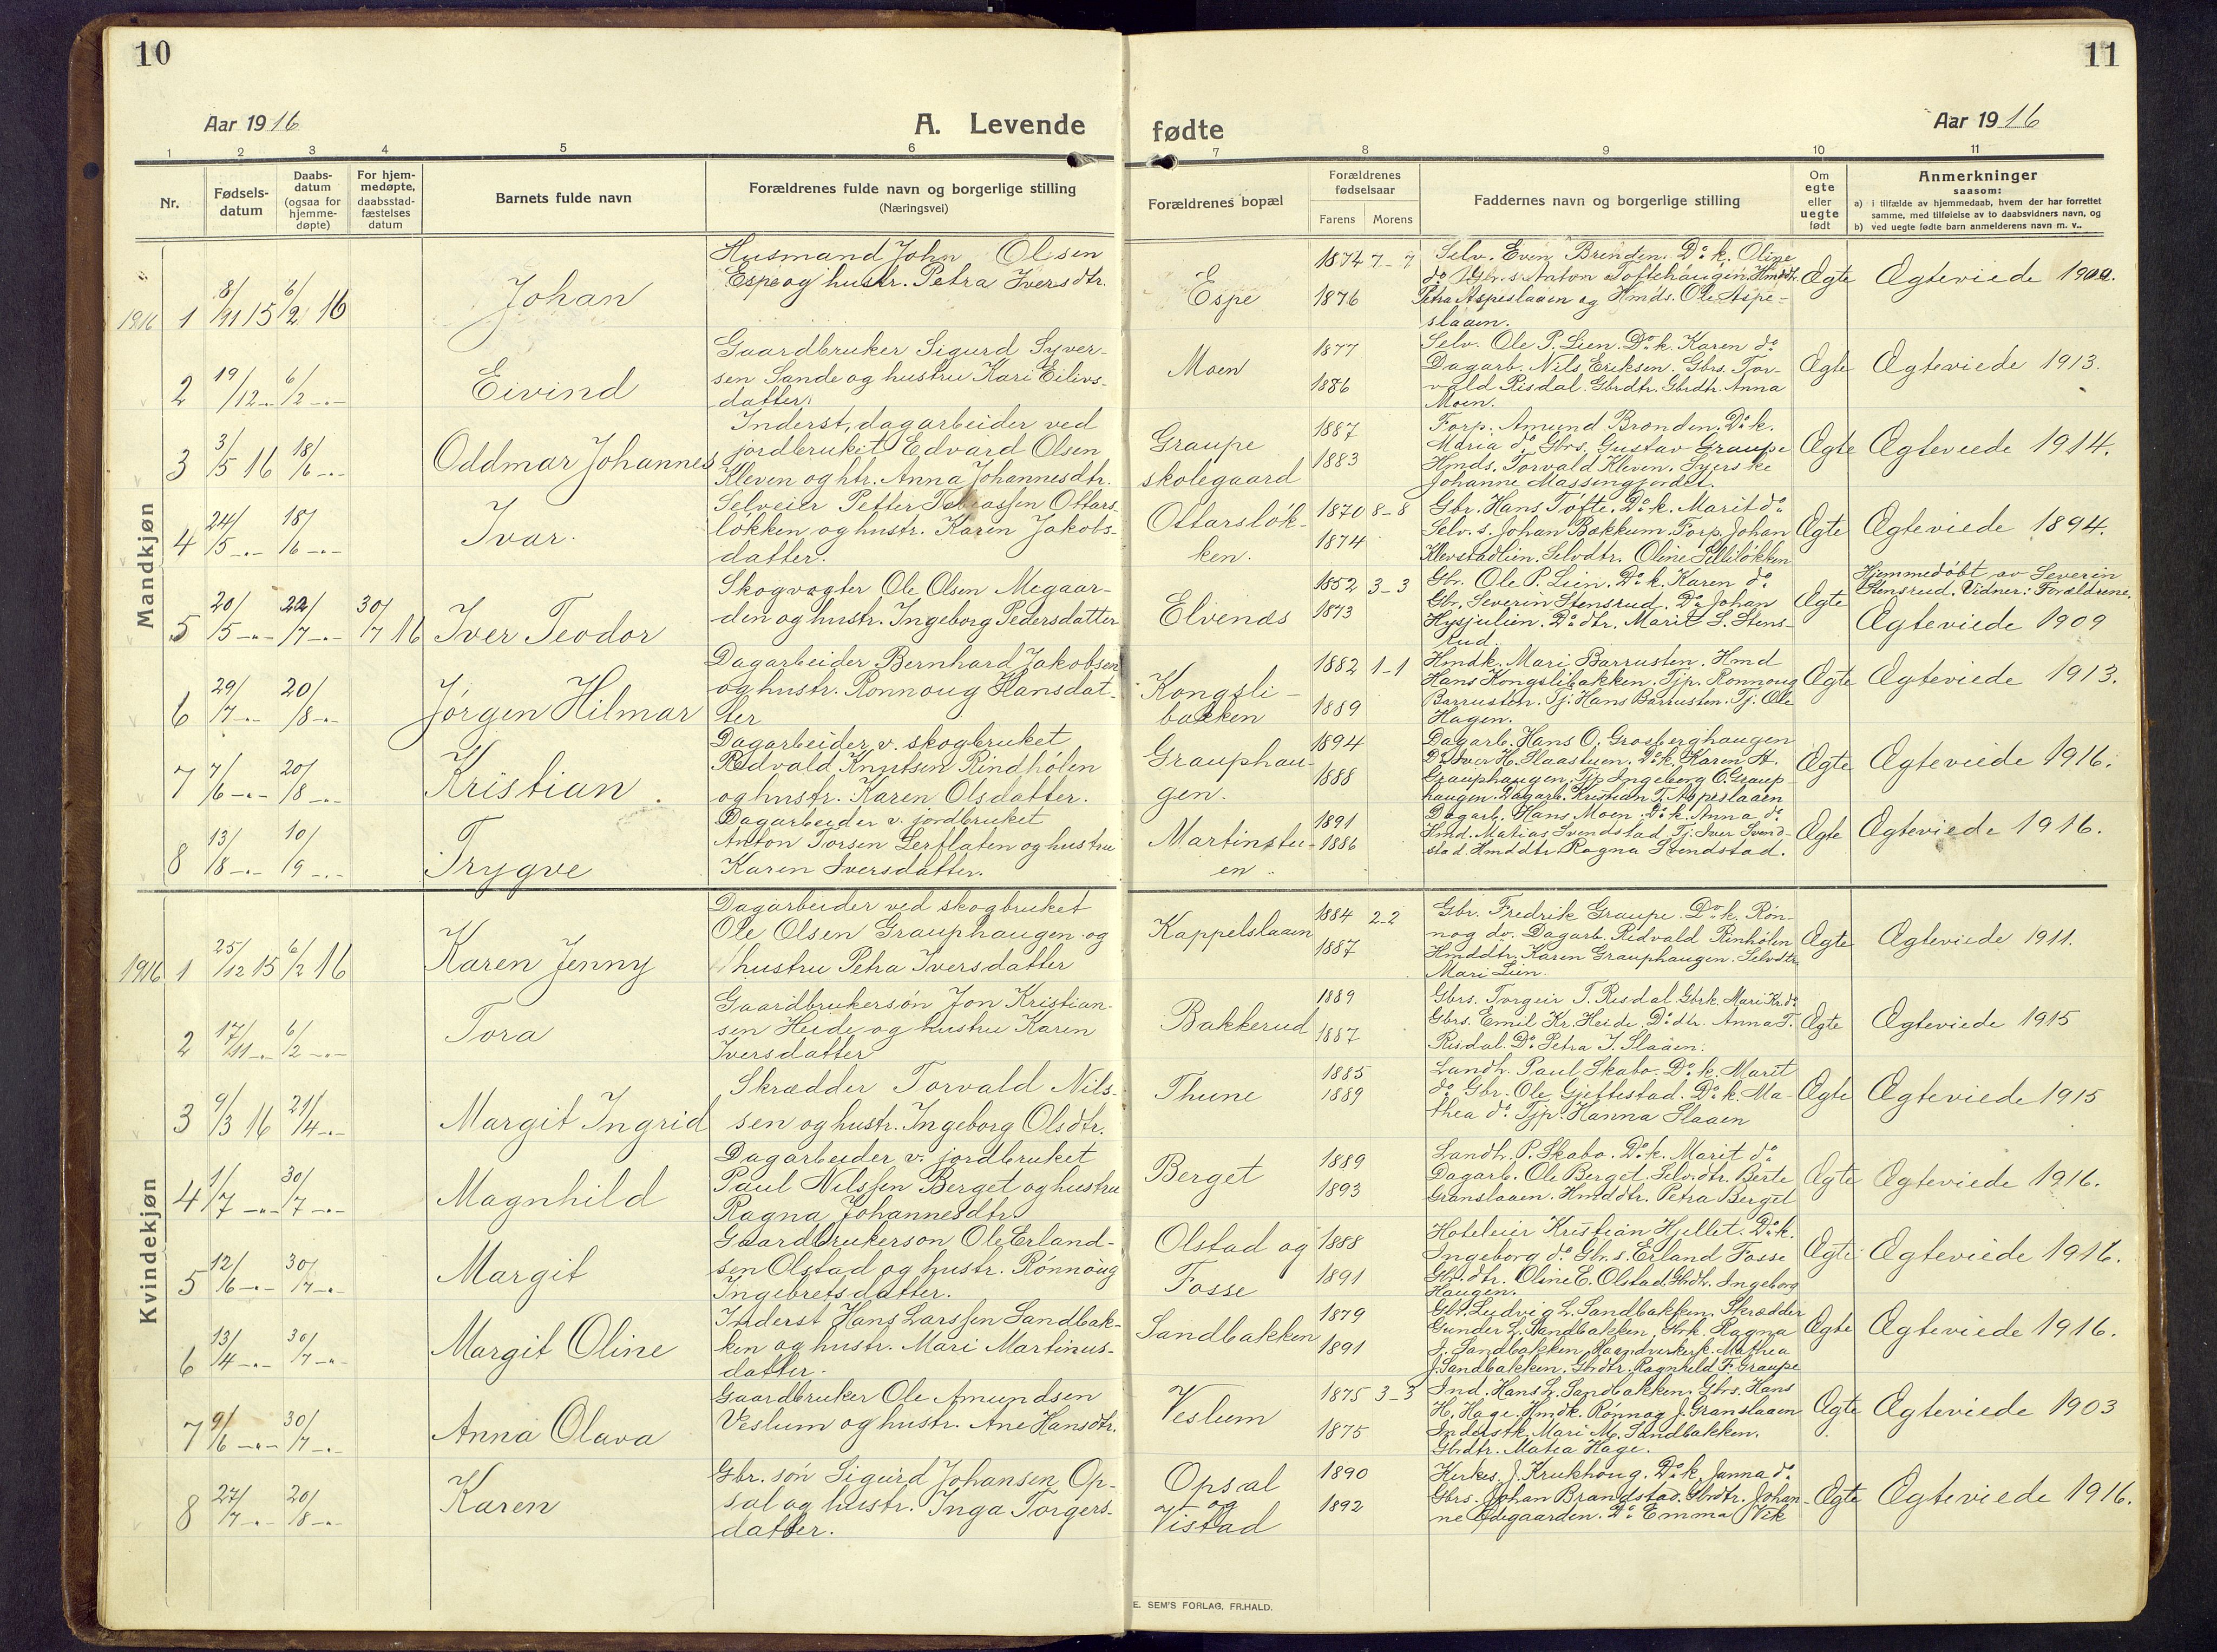 10
11
Aar 1916
A. Levende
fødte
Aar 1916
1
2
3
4
5
6
7
8
9
10
11
Nr.
Fødsels-
datum
Daabs-
datum
(ogsaa for
hjemme-
døpte)
For hjem-
medøpte,
daabsstad-
fæstelses
datum
Barnets fulde navn
Forældrenes fulde navn og borgerlige stilling
(Næringsvei)
Forældrenes bopæl
Forældrenes
fødselsaar
Farens
Morens
Faddernes navn og borgerlige stilling
Om
egte
eller
uegte
født
Anmerkninger
saasom:
a) i tilfælde av hjemmedaab, hvem der har forrettet
samme, med tilføielse av to daabsvidners navn, og
b) ved uegte fødte barn anmelderens navn m. v..
Mandkjøn
1916 1 8/11 15 6/2 16
Johan
Husmand John Olsen
Espe og hustr. Petra Iversdtr.
Espe
1874 7-7
1876
Selv. Even Brenden. Do k. Oline
do Gbr. s. Anton Toftehaugen. Hmddtr.
Petra Aspeslaaen og Hmds. Ole Aspe-
slaaen.
Ægte
Ægteviede 1900.
2 19/12 -"- 6/2 -"-
Eivind
Gaardbruker Sigurd Syver-
sen Sande og hustru Kari Eilivs-
datter.
Moen
1877
1886
Selv. Ole P. Lien. Do k. Karen do
Dagarb. Nils Eriksen. Gbrs. Tor-
vald Risdal. Gbrdtr. Gbrdtr. Anna
Moen.
Ægte
Ægteviede 1913.
3 3/5 16 18/6 -"-
Oddmar Johannes
Inderst, dagarbeider ved
jordbruket Edvard Olsen
Kleven og htr. Anna Johannesdtr.
Graupe
skolegaard
1887
1883
Forp. Amund Bronden. Do k.
Maria do Gbrs. Gustav Graupe
Hmds. Torvald Kleven. Syerske
Johanne Massingjordet.
Ægte
Ægteviede 1914.
4 24/5 -"- 18/6 -"-
Ivar.
Selveier Petter Tobiassen Ottars-
løkken og hustr. Karen Jakobs-
datter.
Ottarsløk-
ken.
1870 8-8
1874
Gbr. Hans Tofte. Do k. Marit do
Selv. s. Johan Bakkum. Forp. Johan
Klevstadlien. Selvdtr. Oline Selliløkken
Ægte
Ægteviede 1894.
5 20/5 -"- 22/7 -"- 30/7 16
Iver Teodor
Skogvogter Ole Olsen Megaar-
den og hustr. Ingeborg Pedersdatter
Elvenæs
1852 3-3
1873
Gbr. Ole P. Lien. Do k. Karen do
Gbr. Severin Stensrud. Do Johan
Hysjulien. Do dtr. Marit S. Stens-
rud.
Ægte
Hjemmedøbt av Severin
Stensrud. Vidner: Forældrene.
Ægteviede 1909
6 29/7 -"- 20/8 -"-
Jørgen Hilmar
Dagarbeider Bernhard Jakobsen
og hustr. Rønnoug Hansdat-
ter
Kongsli-
bakken
1882 1-1
1889
Hmdk. Mari Barrusten. Hmd
Hans Kongslibakken. Tjp. Rønnoug
Barrusten. Tj. Hans Barrusten. Tj. Ole
Hagen.
Ægte
Ægteviede 1913.
7 7/6 -"- 20/8 -"-
Kristian.
Dagarbeider v. skogbruket
Redvald Knutsen Rindhølen
og hustr. Karen Olsdatter.
Grauphau-
gen.
1894
1888
Dagarb. Hans O. Grosberghaugen
Do Iver H. Slaastuen. Do k. Karen A.
Grauphaugen. Tjp Ingeborg O. Graup-
haugen. Dagarb. Kristian T. Aspeslaaen
Ægte
Ægteviede 1916.
8 13/8 -"- 10/9 -"-
Trygve
Dagarbeider v. jordbruket
Anton Torsen Lerflaten og hustru
Karen Iversdatter.
Martinstu-
en.
1891
1886
Dagarb. Hans Moen. Do k. Anna do
Hmd. Matias Svendstad. Tj. Iver Svend-
stad. Hmddtr. Ragna Svendstad.
Ægte
Ægteviede 1916.
Kvindekjøn
1916 1 25/12 15 6/2 16
Karen Jenny
Dagarbeider ved skogbruket
Ole Olsen Grauphaugen og
hustru Petra Iversdatter
Kappelslaaen
1884 2-2
1887
Gbr. Fredrik Graupe. Do k. Røn-
nog do. Dagarb. Redvald Rinhølen
Hmddtr. Karen Grauphaugen. Selvdtr.
Mari Lien.
Ægte
Ægteviede 1911.
2 17/11 -"- 6/2 -"-
Tora
Gaardbrukersøn Jon Kristian-
sen Heide og hustru Karen
Iversdatter
Bakkerud
1889
1887
Gbrs. Torgeir T. Risdal Gbrk. Mari Kr. do
Gbrs. Emil Kr. Heide. Do dtr. Anna T.
Risdal. Do Petra J. Slaaen.
Ægte
Ægteviede 1915
3 9/3 16 21/4 -"-
Margit Ingrid
Skrædder Torvald Nils-
sen og hustr. Ingeborg Olsdtr.
Thune
1885
1889
Landh. Paul Skabo. Do k. Marit
do Gbr. Ole Gjeftestad. Do k. Ma-
thea do Tjp. Hanna Slaaen
Ægte
Ægteviede 1915
4 1/7 -"- 30/7 -"-
Magnhild
Dagarbeider v. jordbruket
Paul Nilssen Berget og hustru
Ragna Johannesdtr.
Berget
1889
1893
Landh. P. Skabo. Do k. Marit do
Dagarb. Ole Berget. Selv. dtr. Berte
Granslaaen. Hmddtr. Petra Berget
Ægte
Ægteviede 1916.
5 12/6 -"- 30/7 -"-
Margit
Gaardbrukerson Ole Erland-
sen Olstad og hustr. Rønnoug
Ingebretsdatter.
Olstad og
Fosse
1888
1891
Hoteleier Kristian Hjellet. Do k.
Ingeborg do Gbr. s. Erland Fosse
Gbr. dtr. Oline E. Olstad. Gbrdtr. Ingeborg
Haugen.
Ægte
Ægteviede 1916.
6 13/4 -"- 30/7 -"-
Margit Oline
Inderst Hans Larssen Sandbak-
ken og hustr. Mari Martinus-
datter.
Sandbakken
1879
1891
Gbr. Ludvig L. Sandbakken. Skrædder
Gunder L. Sandbakken, Gbrk. Ragna
J. Sandbakken. Haandverkerk. Mathea
J. Sandbakken. Gbrdtr. Ragnhild F. Graupe
Ægte
Ægteviede 1916.
7 9/6 -"- 30/7 -"-
Anna Olava
Gaardbruker Ole Amundsen
Veslum og hustr. Ane Hansdtr.
Veslum
1875 3-3
1875
Ind. Hans L. Sandbakken. Gbrs. Hans
H. Hage. Hmdk. Rønnog J. Granslaaen
Inderstk. Mari M. Sandbakken.
Gbrdtr. Matea Hage.
Ægte
Ægteviede 1903
8 27/7 -"- 20/8 -"-
Karen
Gbr. søn Sigurd Johansen Op-
sal og hustr. Inga Torgers-
datter.
Opsal
og
Vistad
1890
1892
Kirkes. J. Krukhoug. Do k. Janna do
Gbrs. Johan Brandstad. Gbrdtr. Johan-
ne Ødegaarden. Do Emma Vik
Ægte
Ægteviede 1916.
E. SEM'S FORLAG, FR.HALD.